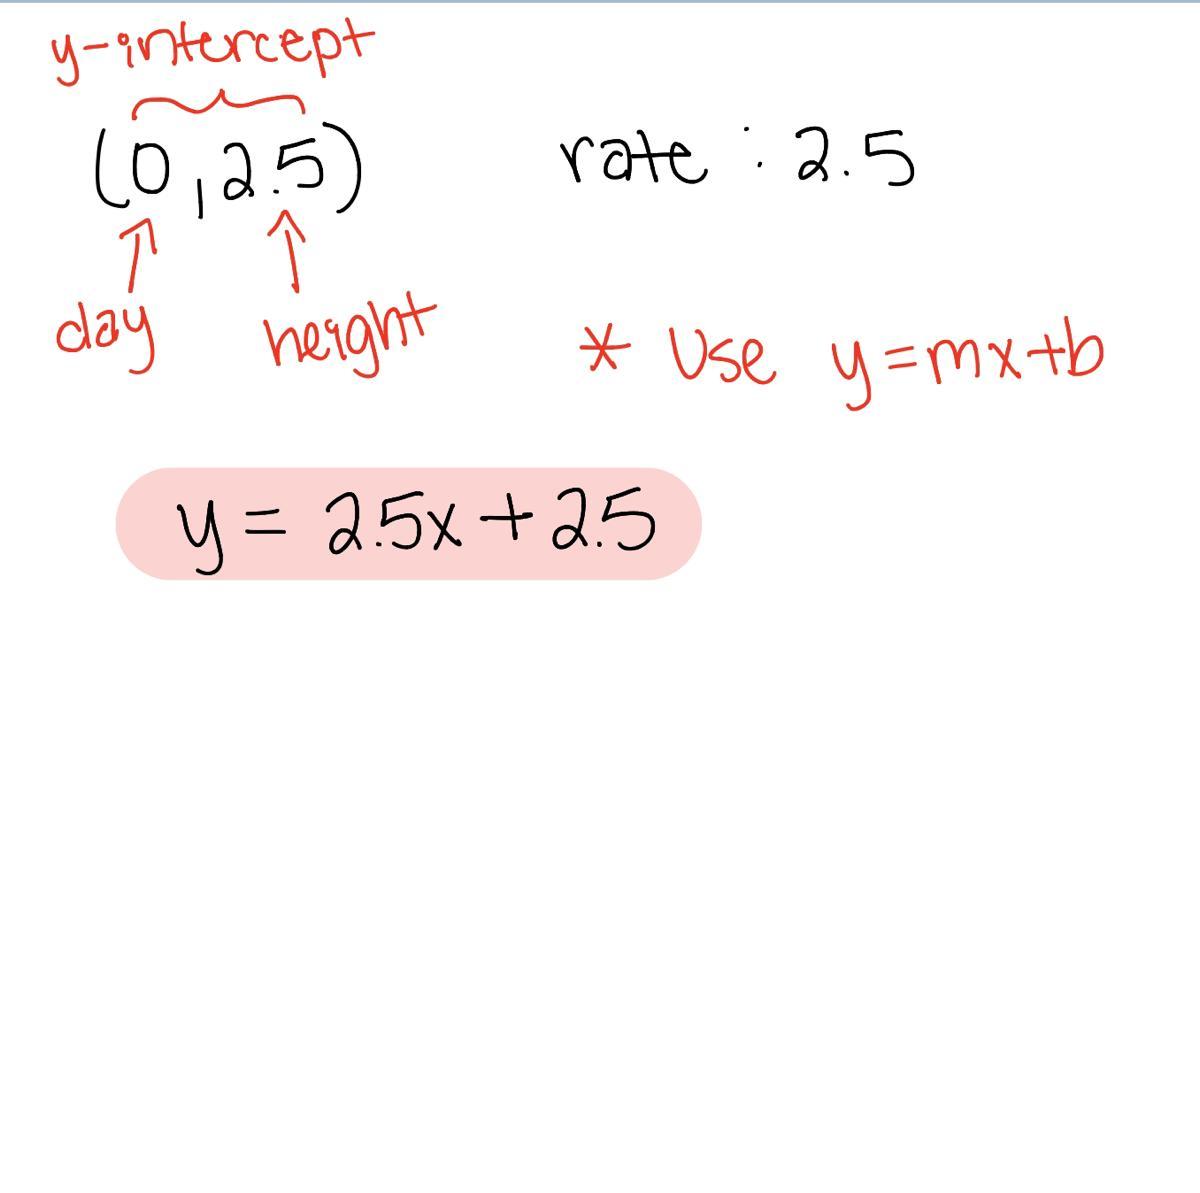 y-intercept
(0,2.5)
rate : 2.5
day height
* Use y=mx+b
y = 2.5x + 2.5